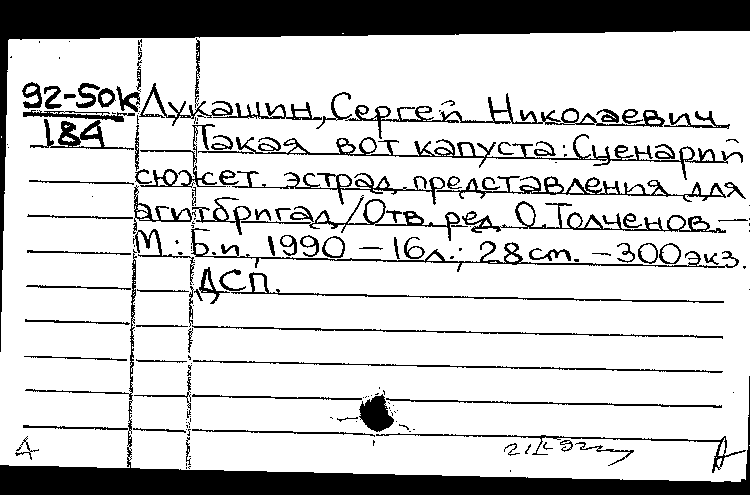 92-50К Лукашин, Сергей Николаевич
184 Такая вот капуста: Сценарий
сюжет. эстрад. представления для
агитбригад/Отв. ред. О. Толченов.—
М.: Б.и., 1990 – 16л.; 28 cm. – 300 экз.
ДСП.
4 A